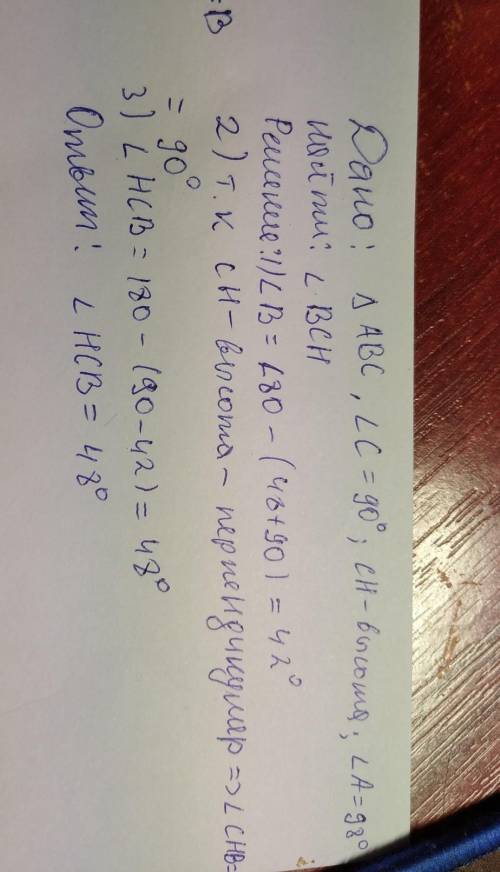 Дано: △ ABC, ∠C = 90°; CH - высота; ∠A = 98°
Найти: ∠ BCH
Решение: 1) ∠B = 180 - (48+90) = 42°
2) т.к CH - высота - перпендикуляр => ∠CHB=
= 90°
3) ∠ HCB = 180 - (90-42) = 48°
Ответ: ∠ HCB = 48°
=B